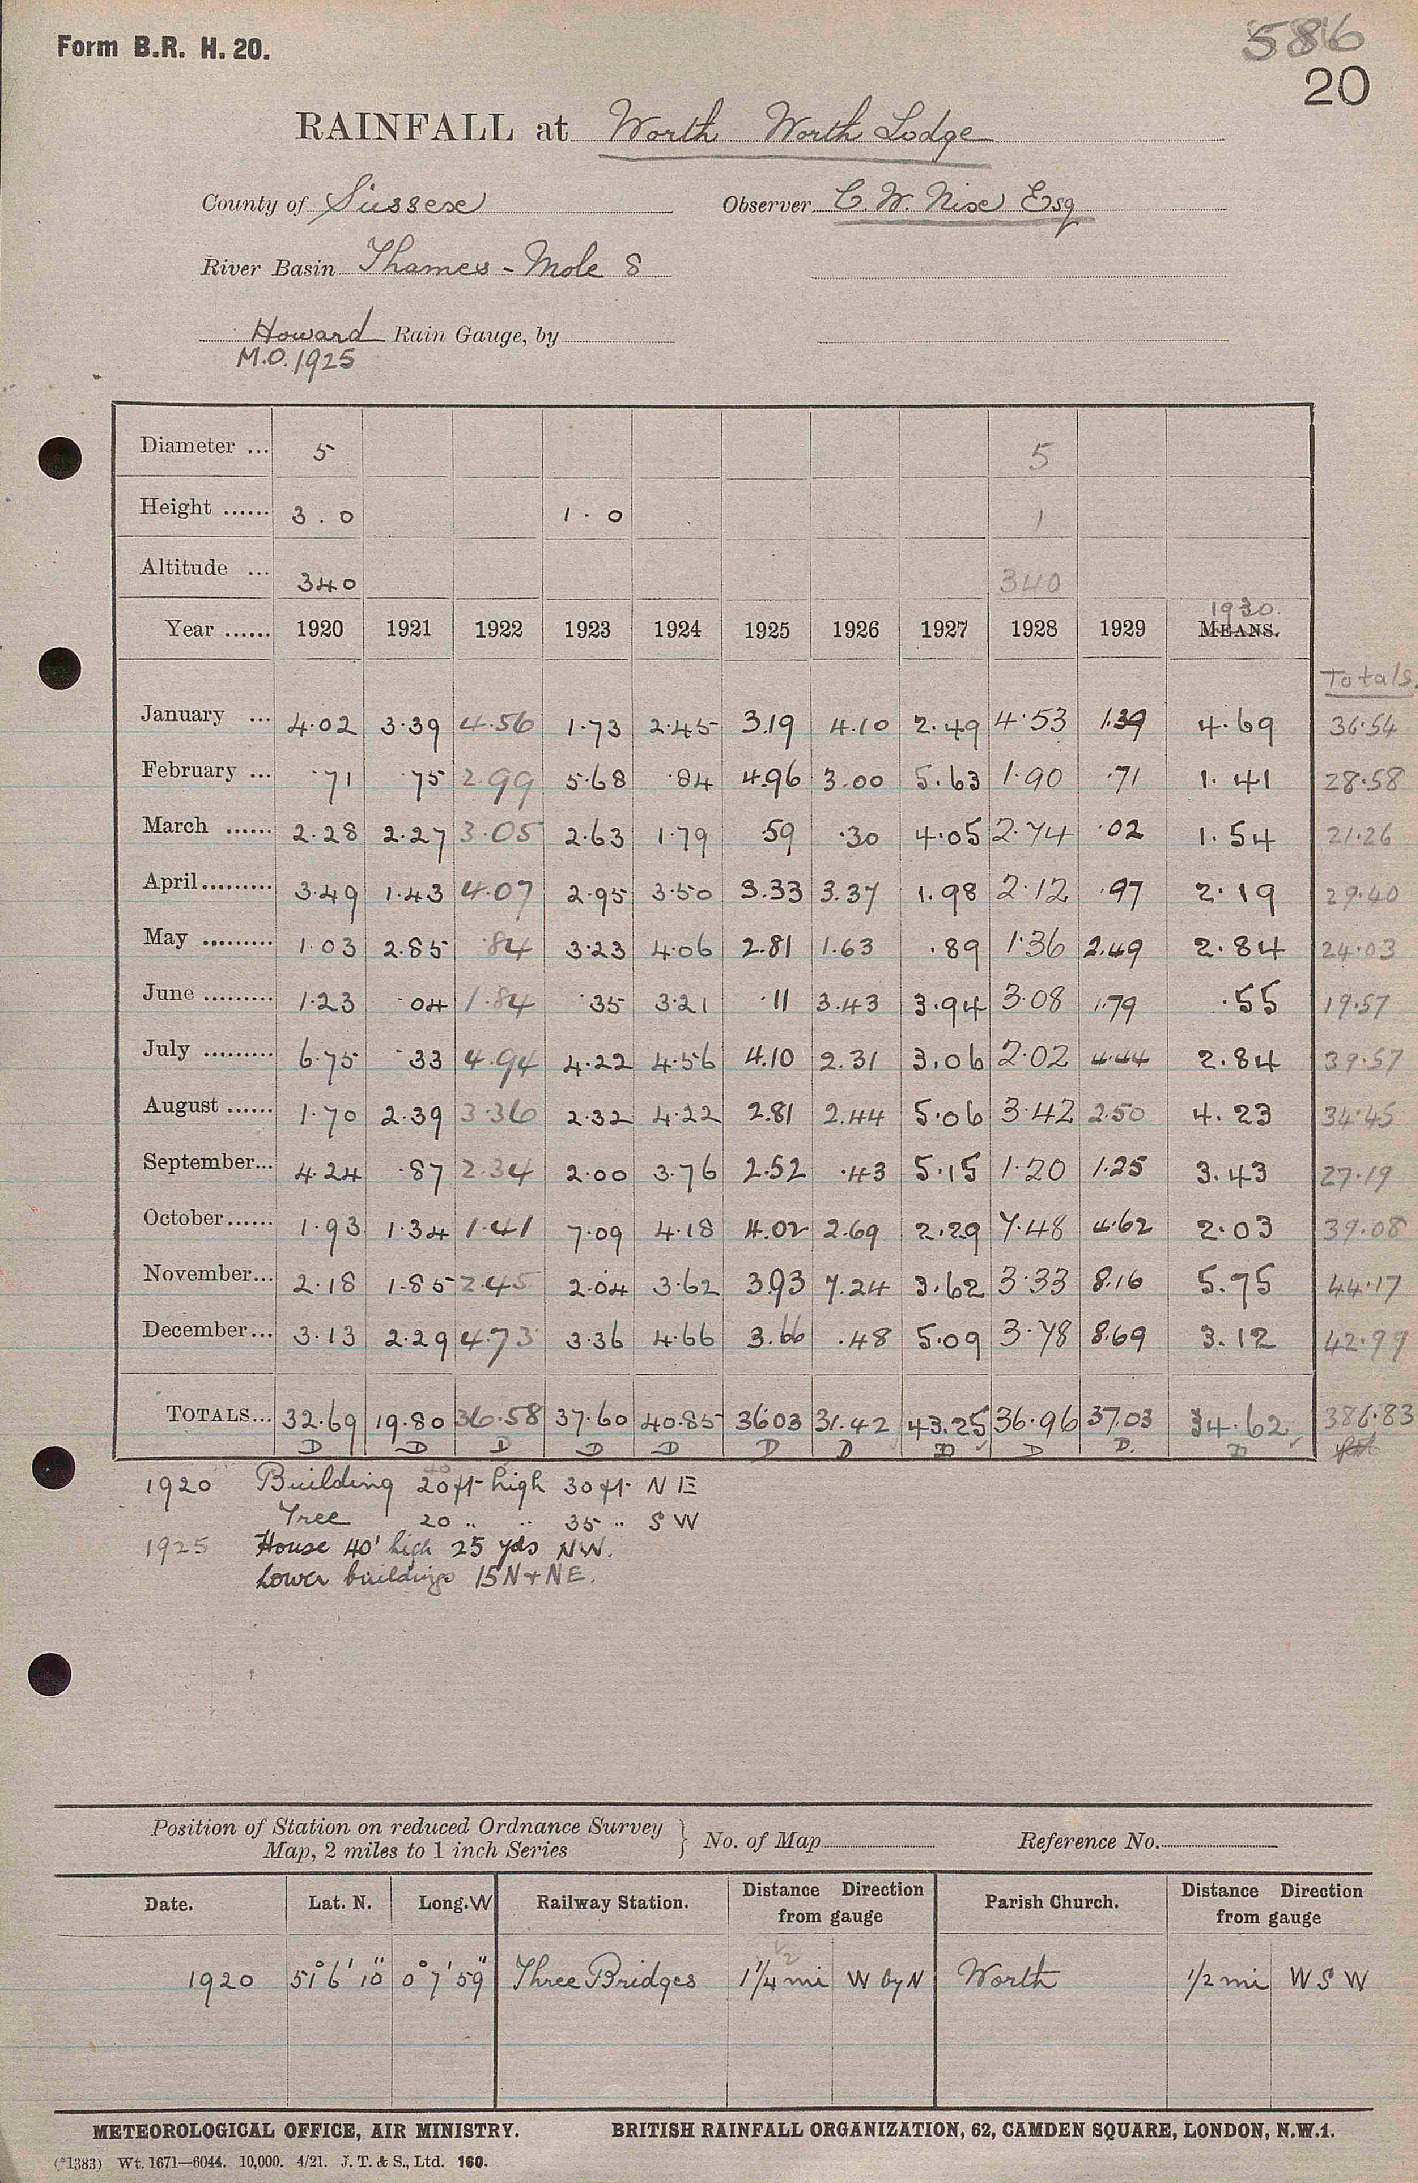 Form B.R. H. 20.
586
20
RAINFALL at Worth Worth Lodge
County of Sussex Observer C. W. Nix Esq
River Basin Thames - Mole 8
Howard Rain Gauge, by
M.O. 1925
Diameter ... 5 5
Height ...... 3.0 1.0 1
Altitude ... 340 340
1930.
Year ...... 1920 1921 1922 1923 1924 1925 1926 1927 1928 1929 MEANS.
Totals.
January ... 4.02 3.39 4.56 1.73 2.45 3.19 4.10 2.49 4.53 1.39 4.69 36.54
February ... .71 .75 2.99 5.68 .84 4.96 3.00 5.63 1.90 .71 1.41 28.58
March ...... 2.28 2.27 3.05 2.63 1.79 .59 .30 4.05 2.74 .02 1.54 21.26
April......... 3.49 1.43 4.07 2.95 3.50 3.33 3.37 1.98 2.12 .97 2.19 29.40
May ......... 1.03 2.85 .84 3.23 4.06 2.81 1.63 .89 1.36 2.49 2.84 24.03
June ......... 1.23 .04 1.84 .35 3.21 .11 3.43 3.94 3.08 1.79 .55 19.57
July ......... 6.75 .33 4.94 4.22 4.56 4.10 2.31 3.06 2.02 4.44 2.84 39.57
August ...... 1.70 2.39 3.36 2.32 4.22 2.81 2.44 5.06 3.42 2.50 4.23 34.45
September... 4.24 .87 2.34 2.00 3.76 2.52 .43 5.15 1.20 1.25 3.43 27.19
October...... 1.93 1.34 1.41 7.09 4.18 4.02 2.69 2.29 7.48 4.62 2.03 39.08
November... 2.18 1.85 2.45 2.04 3.62 3.93 7.24 3.62 3.33 8.16 5.75 44.17
December... 3.13 2.29 4.73 3.36 4.66 3.66 .48 5.09 3.78 8.69 3.12 42.99
TOTALS... 32.69 19.80 36.58 37.60 40.85 36.03 31.42 43.25 36.96 37.03 34.62 386.83
D D D D D D D D D D. D
1920 Building 20 ft high 30 ft. N E
Tree 20 " " 35 " S W
1925 House 40' high 25 yds NW.
Lower buildings 15 N + NE.
Position of Station on reduced Ordnance Survey
Map, 2 miles to 1 inch Series } No. of Map Reference No.
Date. Lat. N. Long. W Railway Station. Distance Direction from gauge Parish Church. Distance Direction from gauge
1920 51° 6' 10" 0° 7' 59" Three Bridges 1 1/4 mi W by N Worth 1/2 mi W S W
METEOROLOGICAL OFFICE, AIR MINISTRY. BRITISH RAINFALL ORGANIZATION, 62, CAMDEN SQUARE, LONDON, N.W.1.
(*1383) Wt. 1671—6044. 10,000. 4/21. J. T. & S., Ltd. 160.